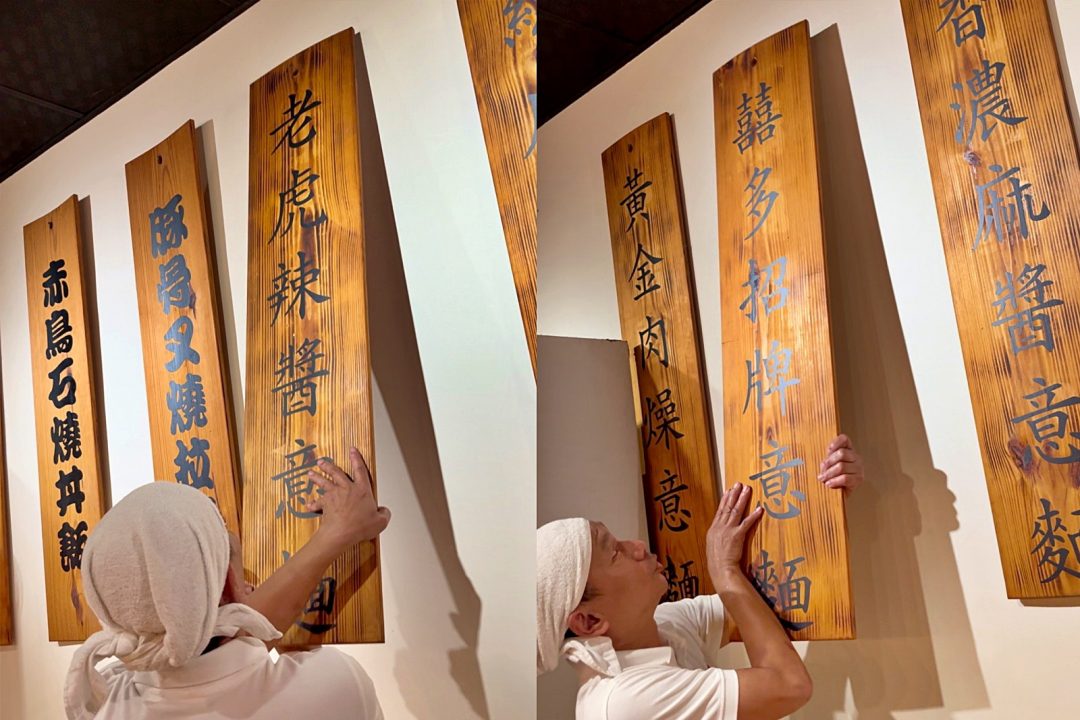 赤鳥石燒丼飯
豚骨叉燒拉
老虎辣醬意麵
黃金肉燥意麵
囍多招牌意麵
香濃麻醬意麵